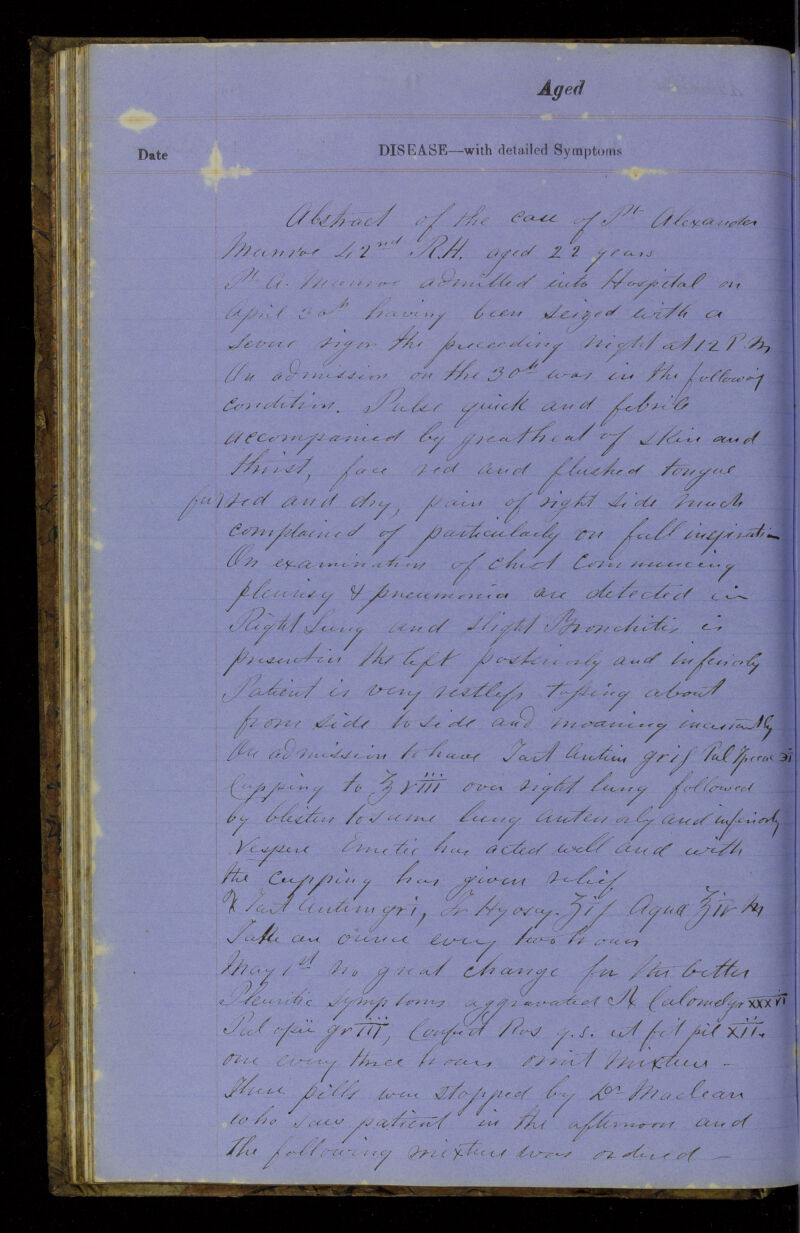 Aged
Date
DISEASE—with detailed Symptoms
Abstract of the case of Pt Alexander
Munroe 42nd R.H. aged 22 years
Pt A. Munroe admitted into Hospital on
April 30th having been seized with a
severe rigor the preceeding night at 12 P.M
On admission on the 30th was in the following
condition. Pulse quick and febrile
accompanied by great heat of skin and
thirst, face red and flushed tongue
furred and dry, pain of right side much
complained of particularly on full inspiration
On examination of chest Commencing
pleurisy & pneumonia are detected in
Right Lung and slight Bronchitis is
present in the left posteriorly and inferiorly
Patient is very restless tossing about
from side to side and moaning incessantly
On admission to have Tart Antim gr if Pul Ipecac ℈i
Cupping to ℥ VIII over right lung followed
by blister to same lung anteriorly and inferiorly
Vespere Emetic has acted well and with
the cupping has given relief
℞ Tart Antim gr i, Tr Hyoscy. ʒij Aqua ℥iv M
Take an ounce every two hours
May 1st No great change for the better
Pleuritic symptoms aggravated ℞ Calomel gr XXXVI
Pul opii gr III, Confect Ros q.s. ut fit pil XII.
one every three hours omit Mixture —
These pills were stopped by Dr Maclean
who saw patient in the afternoon and
the following mixture was ordered —